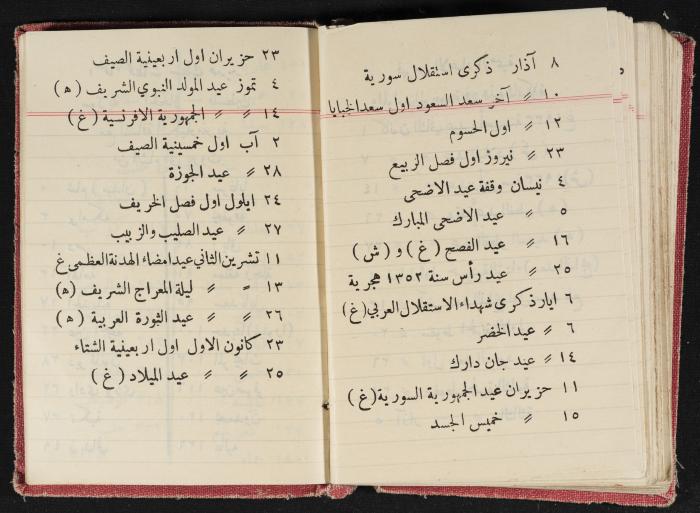 ٨ آذار ذكرى استقلال سورية
١٠ 〃 آخر سعد السعود اول سعد الخبايا
١٢ 〃 اول الحسوم
٢٣ 〃 نيروز اول فصل الربيع
٤ نيسان وقفة عيد الاضحى
٥ 〃 عيد الاضحى المبارك
١٦ 〃 عيد الفصح (غ) و (ش)
٢٥ 〃 عيد رأس سنة ١٣٥٢ هجرية
٦ ايار ذكرى شهداء الاستقلال العربي (غ)
٦ 〃 عيد الخضر
١٤ 〃 عيد جان دارك
١١ حزيران عيد الجمهورية السورية (غ)
١٥ 〃 خميس الجسد
٢٣ حزيران اول اربعينية الصيف
٤ تموز عيد المولد النبوي الشريف (ه)
١٤ 〃 〃 الجمهورية الافرنسية (غ)
٢ آب اول خمسينية الصيف
٢٨ 〃 عيد الجوزة
٢٤ ايلول اول فصل الخريف
٢٧ 〃 عيد الصليب والزبيب
١١ تشرين الثاني عيد امضاء الهدنة العظمى غ
١٣ 〃 〃 ليلة المعراج الشريف (ه)
٢٦ 〃 〃 عيد الثورة العربية (ه)
٢٣ كانون الاول اول اربعينية الشتاء
٢٥ 〃 〃 عيد الميلاد (غ)